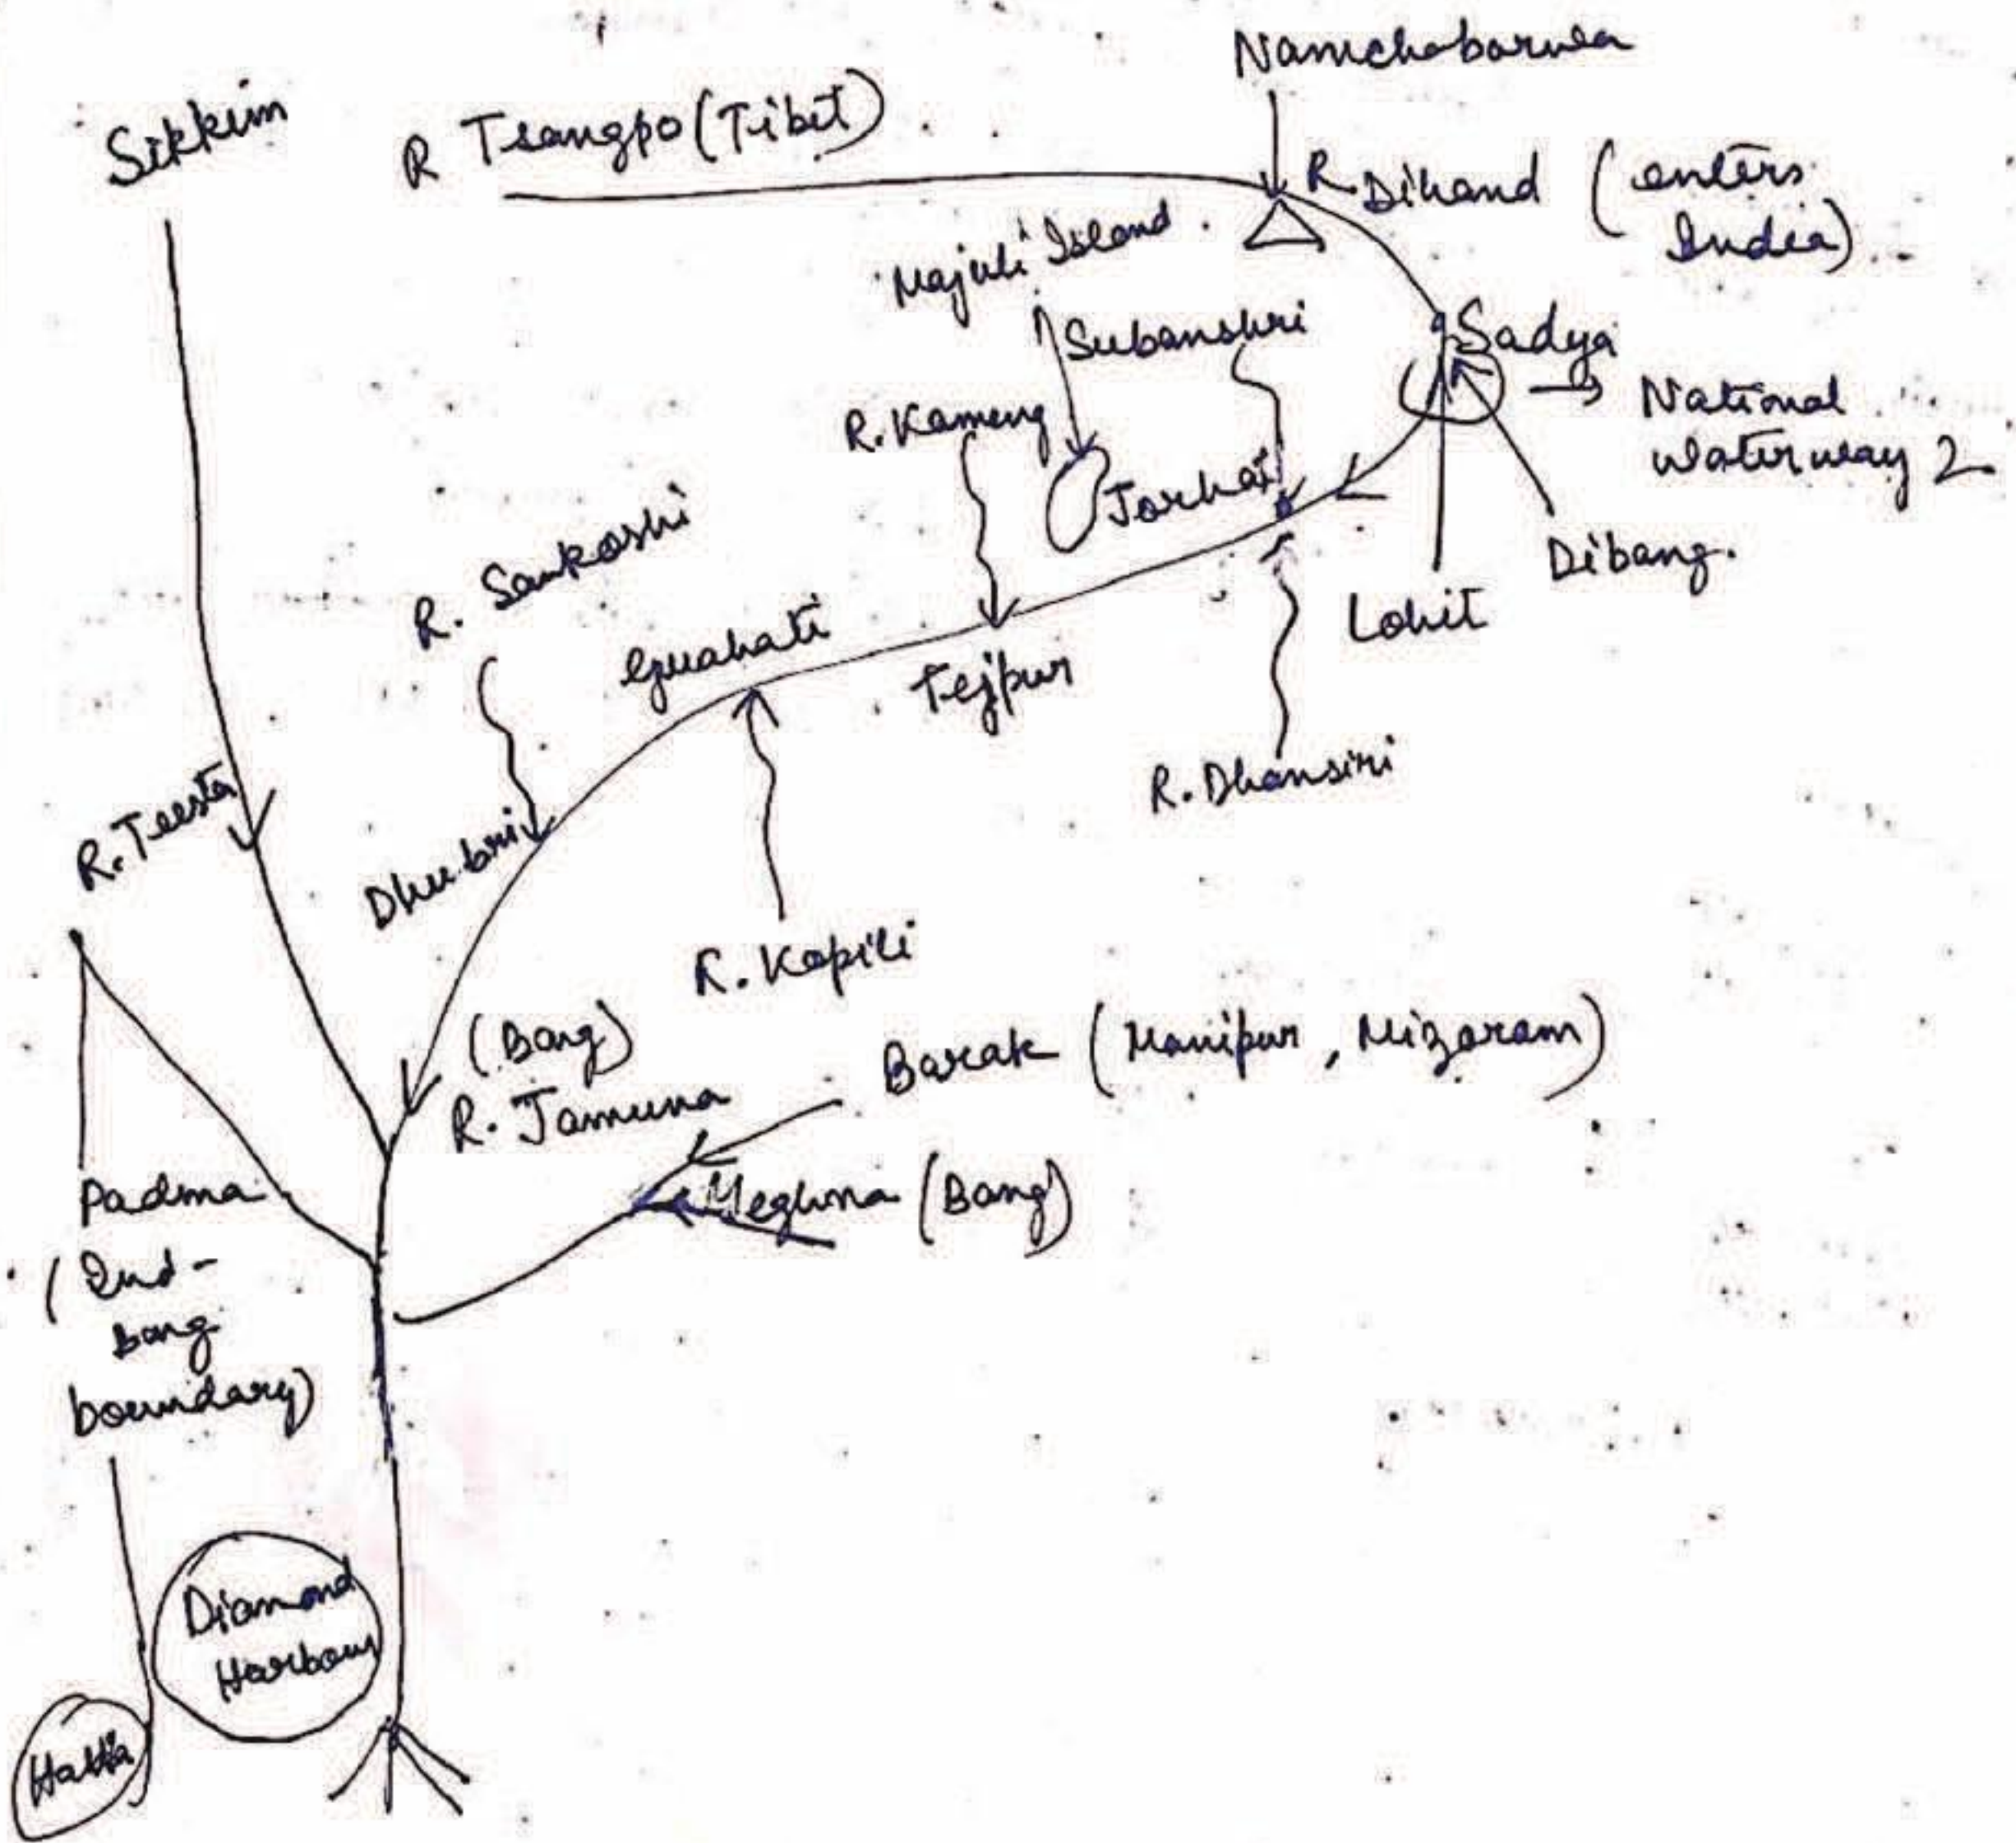 Namchabarwa
Sikkim
R Tsangpo (Tibet)
R. Dihand (enters
India)
Majuli Island
Subanshri
Sadya
National
waterway 2
R. Kameng
Jorhat
R. Sankoshi
Dibang.
Lohit
Guahati
Tejpur
R. Dhansiri
R. Teesta
Dhubri
R. Kapili
(Bang)
R. Jamuna
Barak (Manipur, Mizoram)
Meghna (Bang)
Padma
(Ind-
Bang
boundary)
Diamond
Harbour